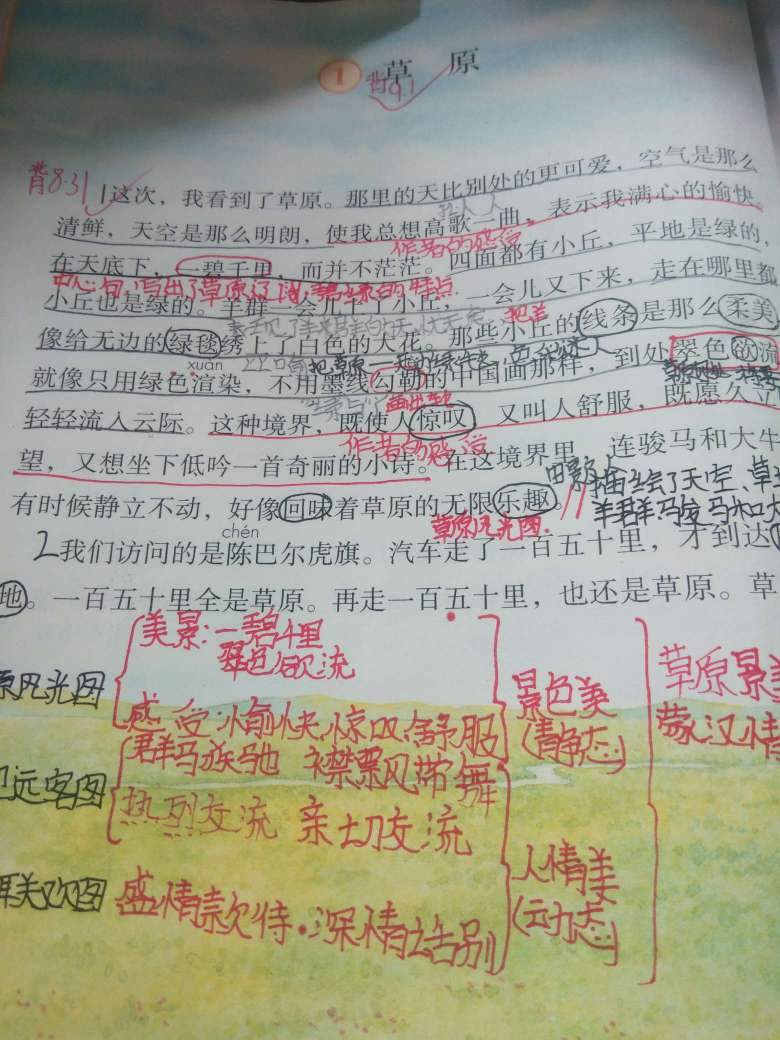 1 草原
背9.1
背8.31
1这次，我看到了草原。那里的天比别处的更可爱，空气是那么
清鲜，天空是那么明朗，使我总想高歌一曲，表示我满心的愉快。
作者的感信
在天底下，一碧千里，而并不茫茫。四面都有小丘，平地是绿的，
中心句，写出了草原辽阔，碧绿的特点
小丘也是绿的。羊群一会儿上了小丘，一会儿又下来，走在哪里都
把羊
像给无边的绿毯绣上了白色的大花。那些小丘的线条是那么柔美
把草原
xuàn
就像只用绿色渲染，不用墨线勾勒的中国画那样，到处翠色欲流
画出轮
轻轻流入云际。这种境界，既使人惊叹，又叫人舒服，既愿久立
作者的感信
望，又想坐下低吟一首奇丽的小诗。在这境界里，连骏马和大牛
描绘了天空、草
有时候静立不动，好像回味着草原的无限乐趣。
草原风光图
羊群、马
chén
2我们访问的是陈巴尔虎旗。汽车走了一百五十里，才到达
地。一百五十里全是草原。再走一百五十里，也还是草原。草
美景：一碧千里
翠色欲流
原风光图
感受：愉快、惊叹、舒服
景色美
(静态)
草原景
蒙汉情
群马疾驰 襟飘带舞
远客图
热烈交流 亲切交流
联欢图 盛情款待·深情告别
人情美
(动态)